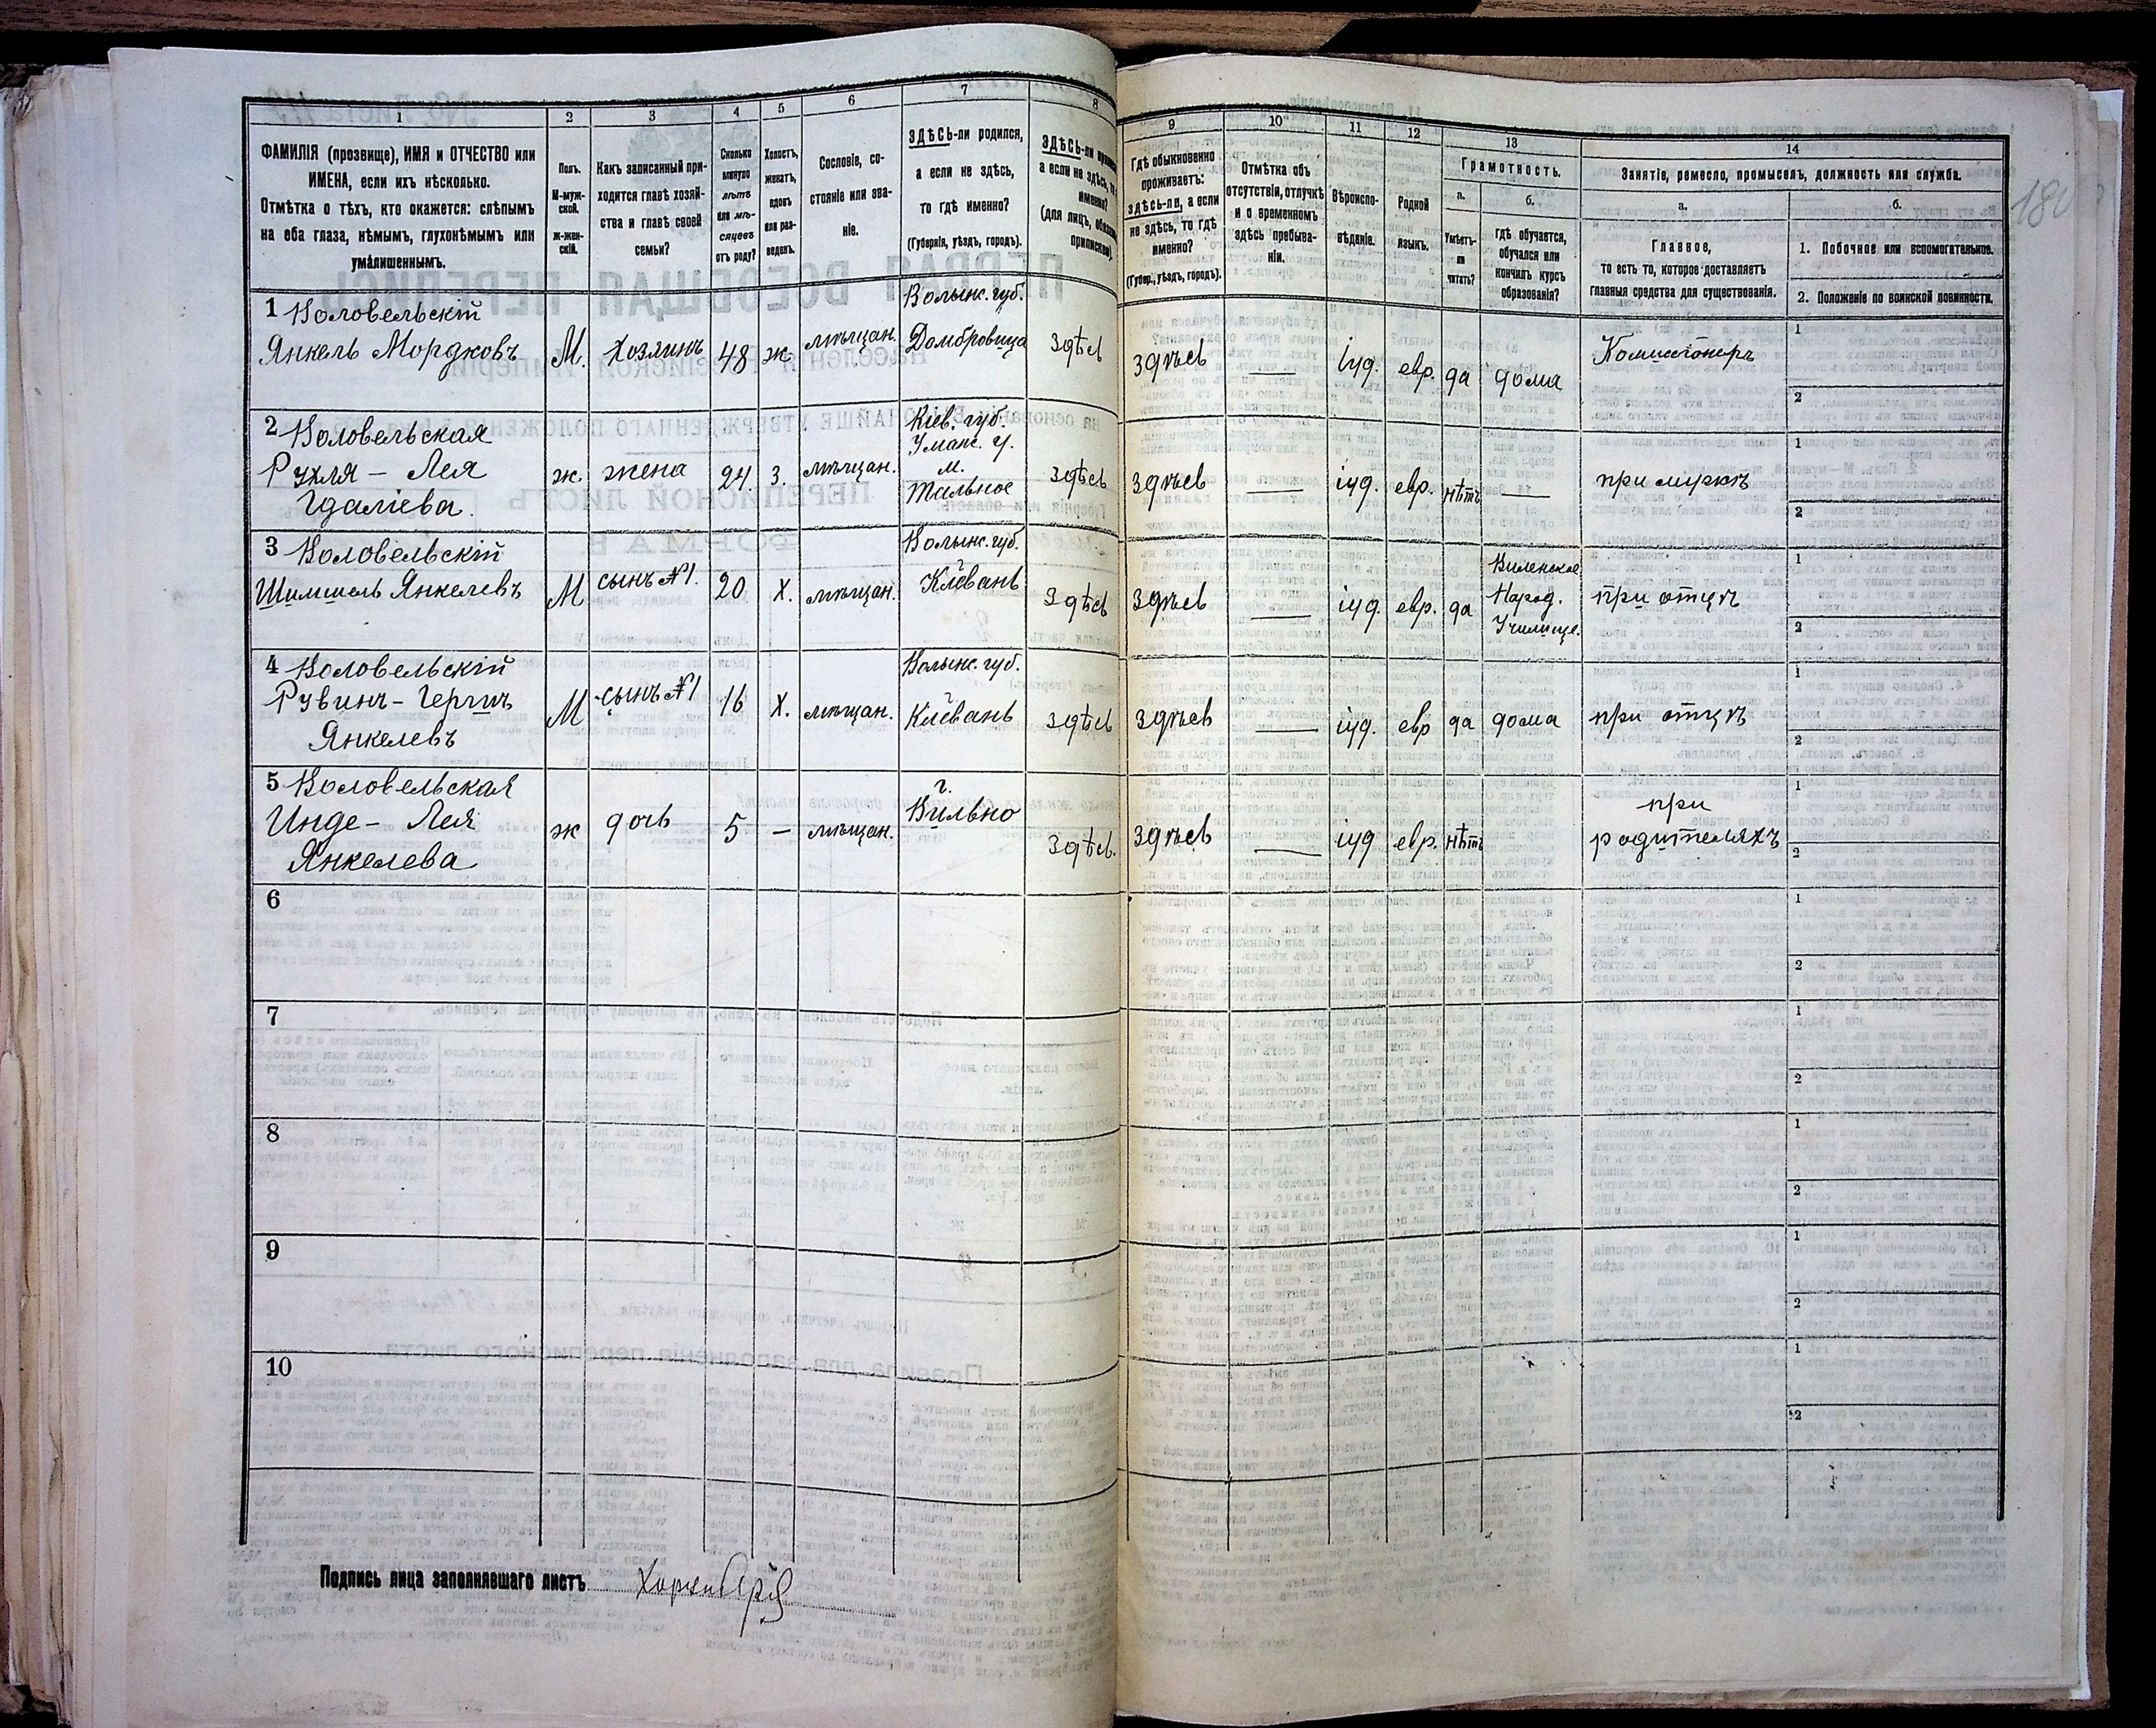 1 2 3 4 5 6 7 8
ФАМИЛІЯ (прозвище), ИМЯ и ОТЧЕСТВО или
ИМЕНА, если ихъ нѣсколько.
Отмѣтка о тѣхъ, кто окажется: слѣпымъ
на оба глаза, нѣмымъ, глухонѣмымъ или
умалишеннымъ.
Полъ.
М-муж-
ской.
ж-жен-
скій.
Какъ записанный при-
ходится главѣ хозяй-
ства и главѣ своей
семьи?
Сколько
минуло
лѣтъ
или мѣ-
сяцевъ
отъ роду?
Холостъ,
женатъ,
вдовъ
или раз-
веденъ.
Сословіе, со-
стояніе или зва-
ніе.
ЗДѢСЬ-ли родился,
а если не здѣсь,
то гдѣ именно?
(Губернія, уѣздъ, городъ).
ЗДѢСЬ-ли
а если не здѣсь,
именно?
(для лицъ,
9 10 11 12 13 14
Гдѣ обыкновенно
проживаетъ:
здѣсь-ли, а если
не здѣсь, то гдѣ
именно?
(Губер., уѣздъ, городъ).
Отмѣтка объ
отсутствіи, отлучкѣ
и о временномъ
здѣсь пребыва-
ніи.
Вѣроиспо-
вѣданіе.
Родной
языкъ.
Грамотность.
а. б.
Умѣетъ-
ли
читать?
гдѣ обучается,
обучался или
кончилъ курсъ
образованія?
Занятіе, ремесло, промыселъ, должность или служба.
а. б.
Главное,
то есть то, которое доставляетъ
главныя средства для существованія.
1. Побочное или вспомогательное.
2. Положеніе по воинской повинности.
1 Воловельскій
Янкель Мордковъ М. Хозяинъ 48 ж мѣщан. Волынс. губ. Домбровица здѣсь здѣсь — іуд. евр. да дома Комиссіонеръ
1
2
2 Воловельская
Рухля - Лея
Гдаліева. ж. жена 24 з. мѣщан. Кіев. губ. Уманс. у. м. Тальное здѣсь здѣсь — іуд. евр. нѣтъ — при мужѣ
1
2
3 Воловельскій
Шимшель Янкелевъ М сынъ №1. 20 Х. мѣщан. Волынс. губ. Клевань здѣсь здѣсь — іуд. евр. да Виленское Народ. Училище. при отцѣ
1
2
4 Воловельскій
Рувинъ - Гершъ
Янкелевъ М сынъ №1 16 Х. мѣщан. Волынс. губ. Клевань здѣсь здѣсь — іуд. евр да дома при отцѣ
1
2
5 Воловельская
Инде - Лея
Янкелева ж дочь 5 — мѣщан. г. Вильно здѣсь. здѣсь — іуд евр. нѣтъ при родителяхъ
1
2
6
1
2
7
1
2
8
1
2
9
1
2
10
1
2
Подпись лица заполнявшаго листъ